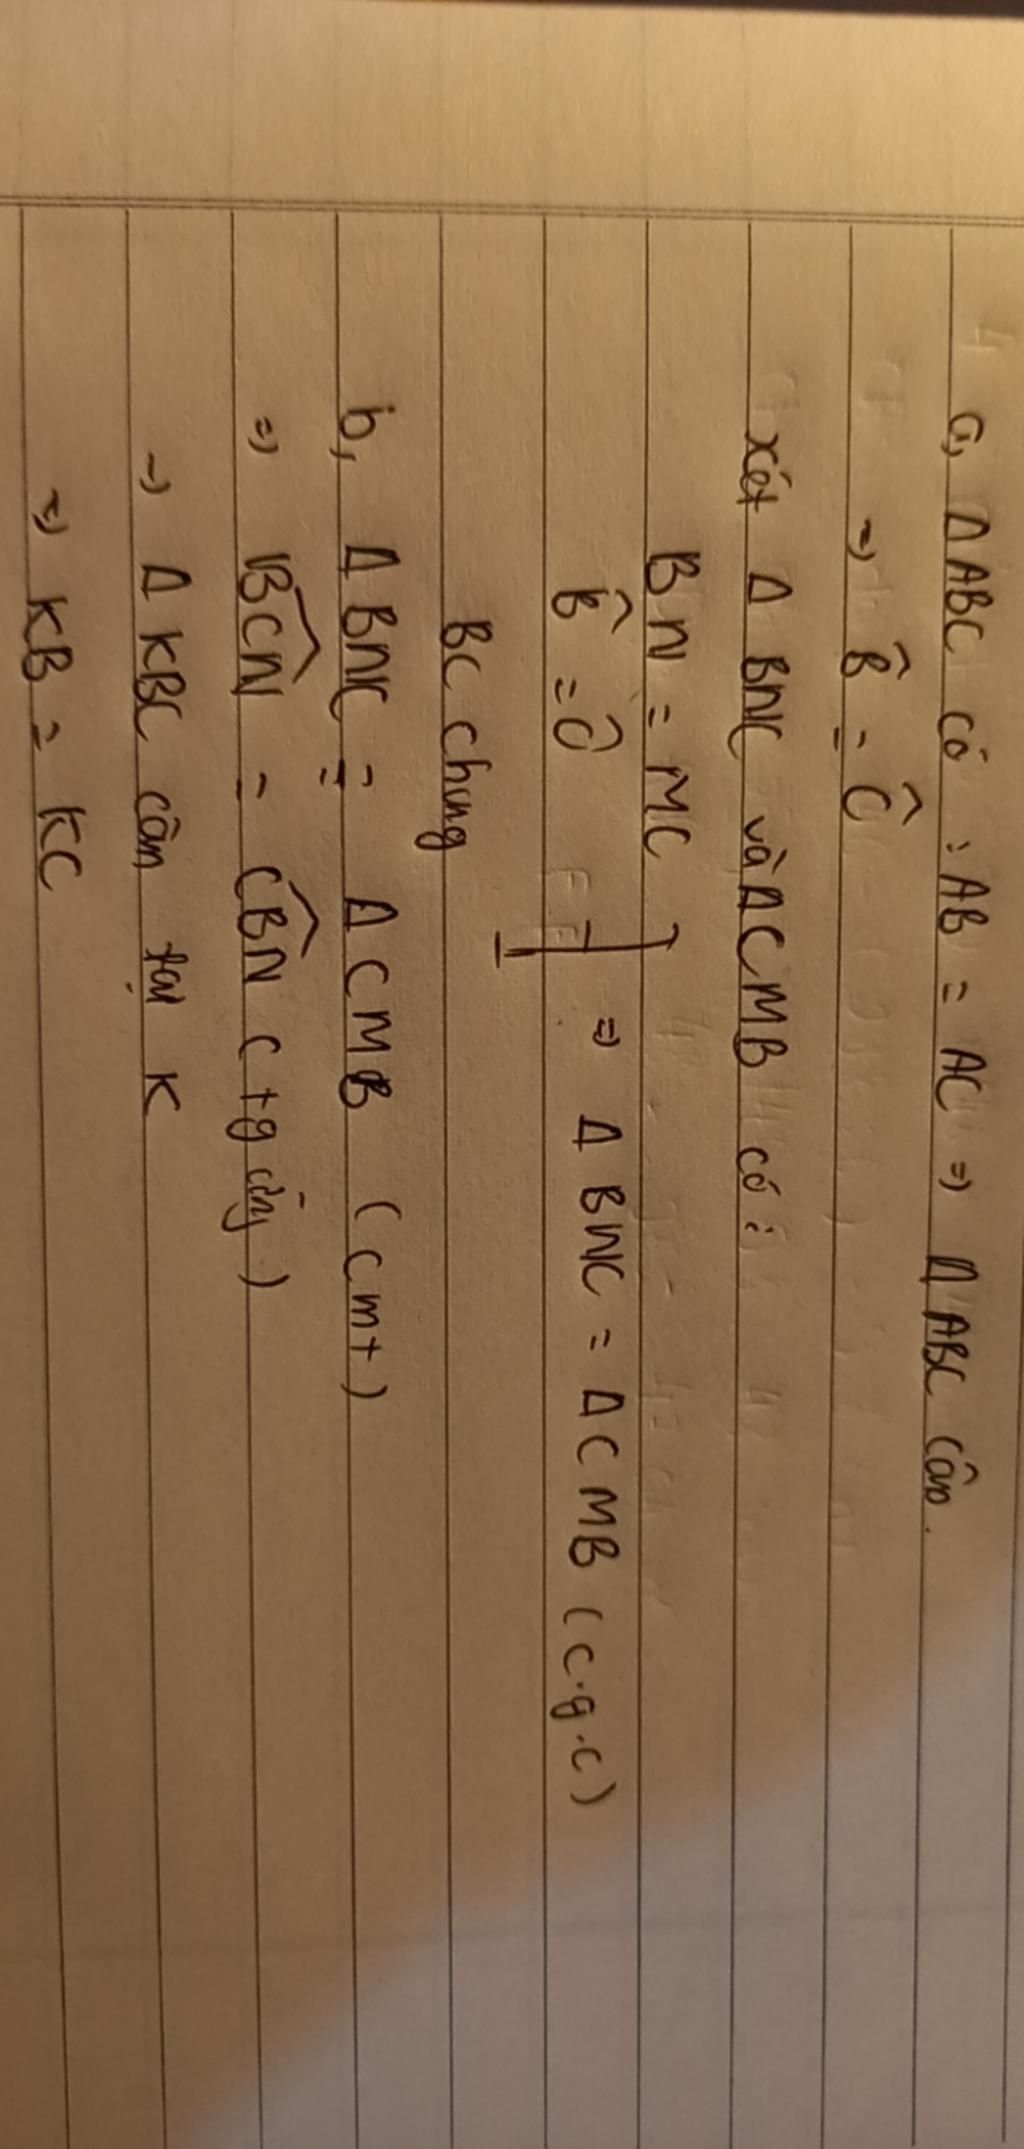 a, Δ ABC có : AB = AC => Δ ABC cân.
=> B̂ = Ĉ
xét Δ BNC và Δ CMB có :
BN = MC
B̂ = Ĉ => Δ BNC = Δ CMB (c.g.c)
BC chung
b, Δ BNC = Δ CMB (cmt)
=> BCN = CBN (tg cân)
=> Δ KBC cân tại K
=> KB = KC